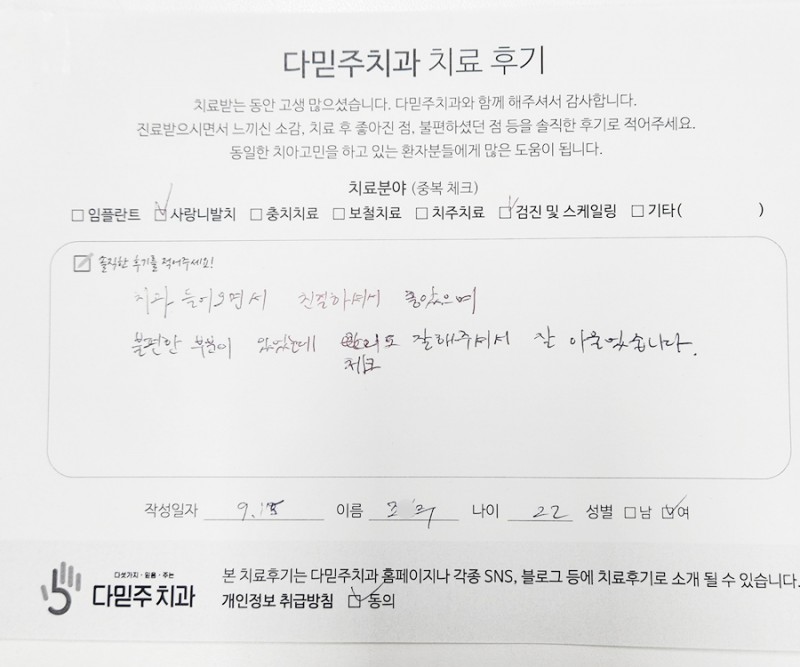 다믿주치과 치료 후기
치료받는 동안 고생 많으셨습니다. 다믿주치과와 함께 해주셔서 감사합니다.
진료받으시면서 느끼신 소감, 치료 후 좋아진 점, 불편하셨던 점 등을 솔직한 후기로 적어주세요.
동일한 치아고민을 하고 있는 환자분들에게 많은 도움이 됩니다.
치료분야 (중복 체크)
□ 임플란트 ☑ 사랑니발치 □ 충치치료 □ 보철치료 □ 치주치료 ☑ 검진 및 스케일링 □ 기타( )
솔직한 후기를 적어주세요!
치과 들어오면서 친절하셔서 좋았으며
불편한 부분이 있었는데 잘해주셔서 잘
체크
작성일자 9.15 이름 나이 22 성별 □ 남 ☑ 여
다섯가지·믿음·주는
다믿주치과
본 치료후기는 다믿주치과 홈페이지나 각종 SNS, 블로그 등에 치료후기로 소개 될 수 있습니다.
개인정보 취급방침 ☑ 동의